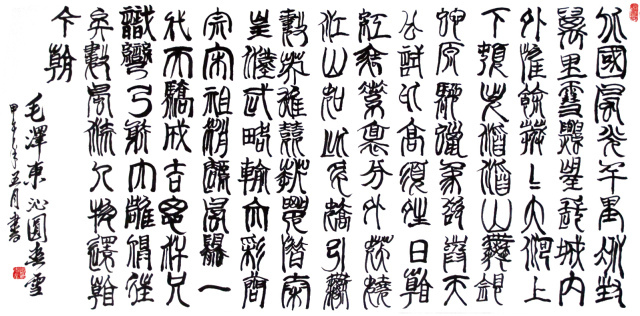 北國風光千里冰封
萬里雪飄望長城內
外惟餘莽莽大河上
下頓失滔滔山舞銀
蛇原馳蠟象欲與天
公試比高須晴日看
紅裝素裹分外妖嬈
江山如此多嬌引無
數英雄競折腰惜秦
皇漢武略輸文彩唐
宗宋祖稍遜風騷一
代天驕成吉思汗只
識彎弓射大雕俱往
矣數風流人物還看
今朝
毛澤東沁園春雪
甲午年五月書